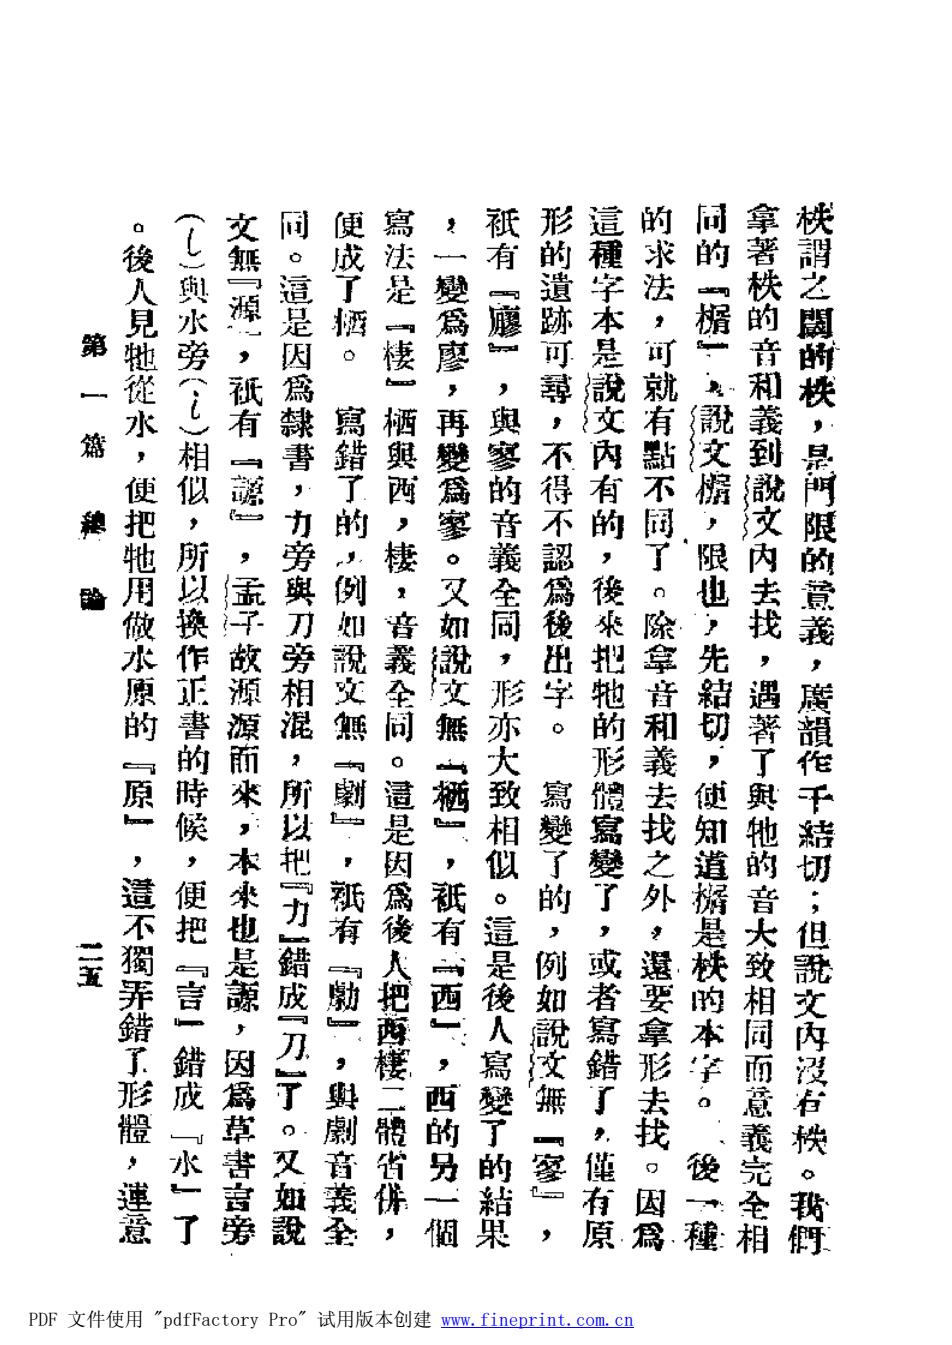 秩謂之閾的秩，是門限的意義，廣韻作千結切；但說文內沒有秩。我們
拿著秩的音和義到說文內去找，遇著了與牠的音大致相同而意義完全相
同的『榍』，說文榍，限也，先結切，便知道榍是秩的本字。　後一種
的求法，可就有點不同了。除拿音和義去找之外，還要拿形去找。因爲
這種字本是說文內有的，後來把牠的形體寫變了，或者寫錯了，僅有原
形的遺跡可尋，不得不認爲後出字。　寫變了的，例如說文無『寥』，
祇有『廫』，與寥的音義全同，形亦大致相似。這是後人寫變了的結果
，一變爲廖，再變爲寥。又如說文無『栖』，祇有『西』，西的另一個
寫法是『棲』栖與西，棲，音義全同。這是因爲後人把西棲二體省併，
便成了栖。　寫錯了的，例如說文無『劇』，祇有『勮』，與劇音義全
同。這是因爲隸書，力旁與刀旁相混，所以把『力』錯成『刀』了。又如說
文無『源』，祇有『謜』，孟子故源源而來，本來也是謜，因爲草書言旁
（讠）與水旁（氵）相似，所以換作正書的時候，便把『言』錯成『水』了
。後人見牠從水，便把牠用做水原的『原』，這不獨弄錯了形體，連意
第一篇　總論
二五
PDF 文件使用 "pdfFactory Pro" 试用版本创建 www.fineprint.com.cn